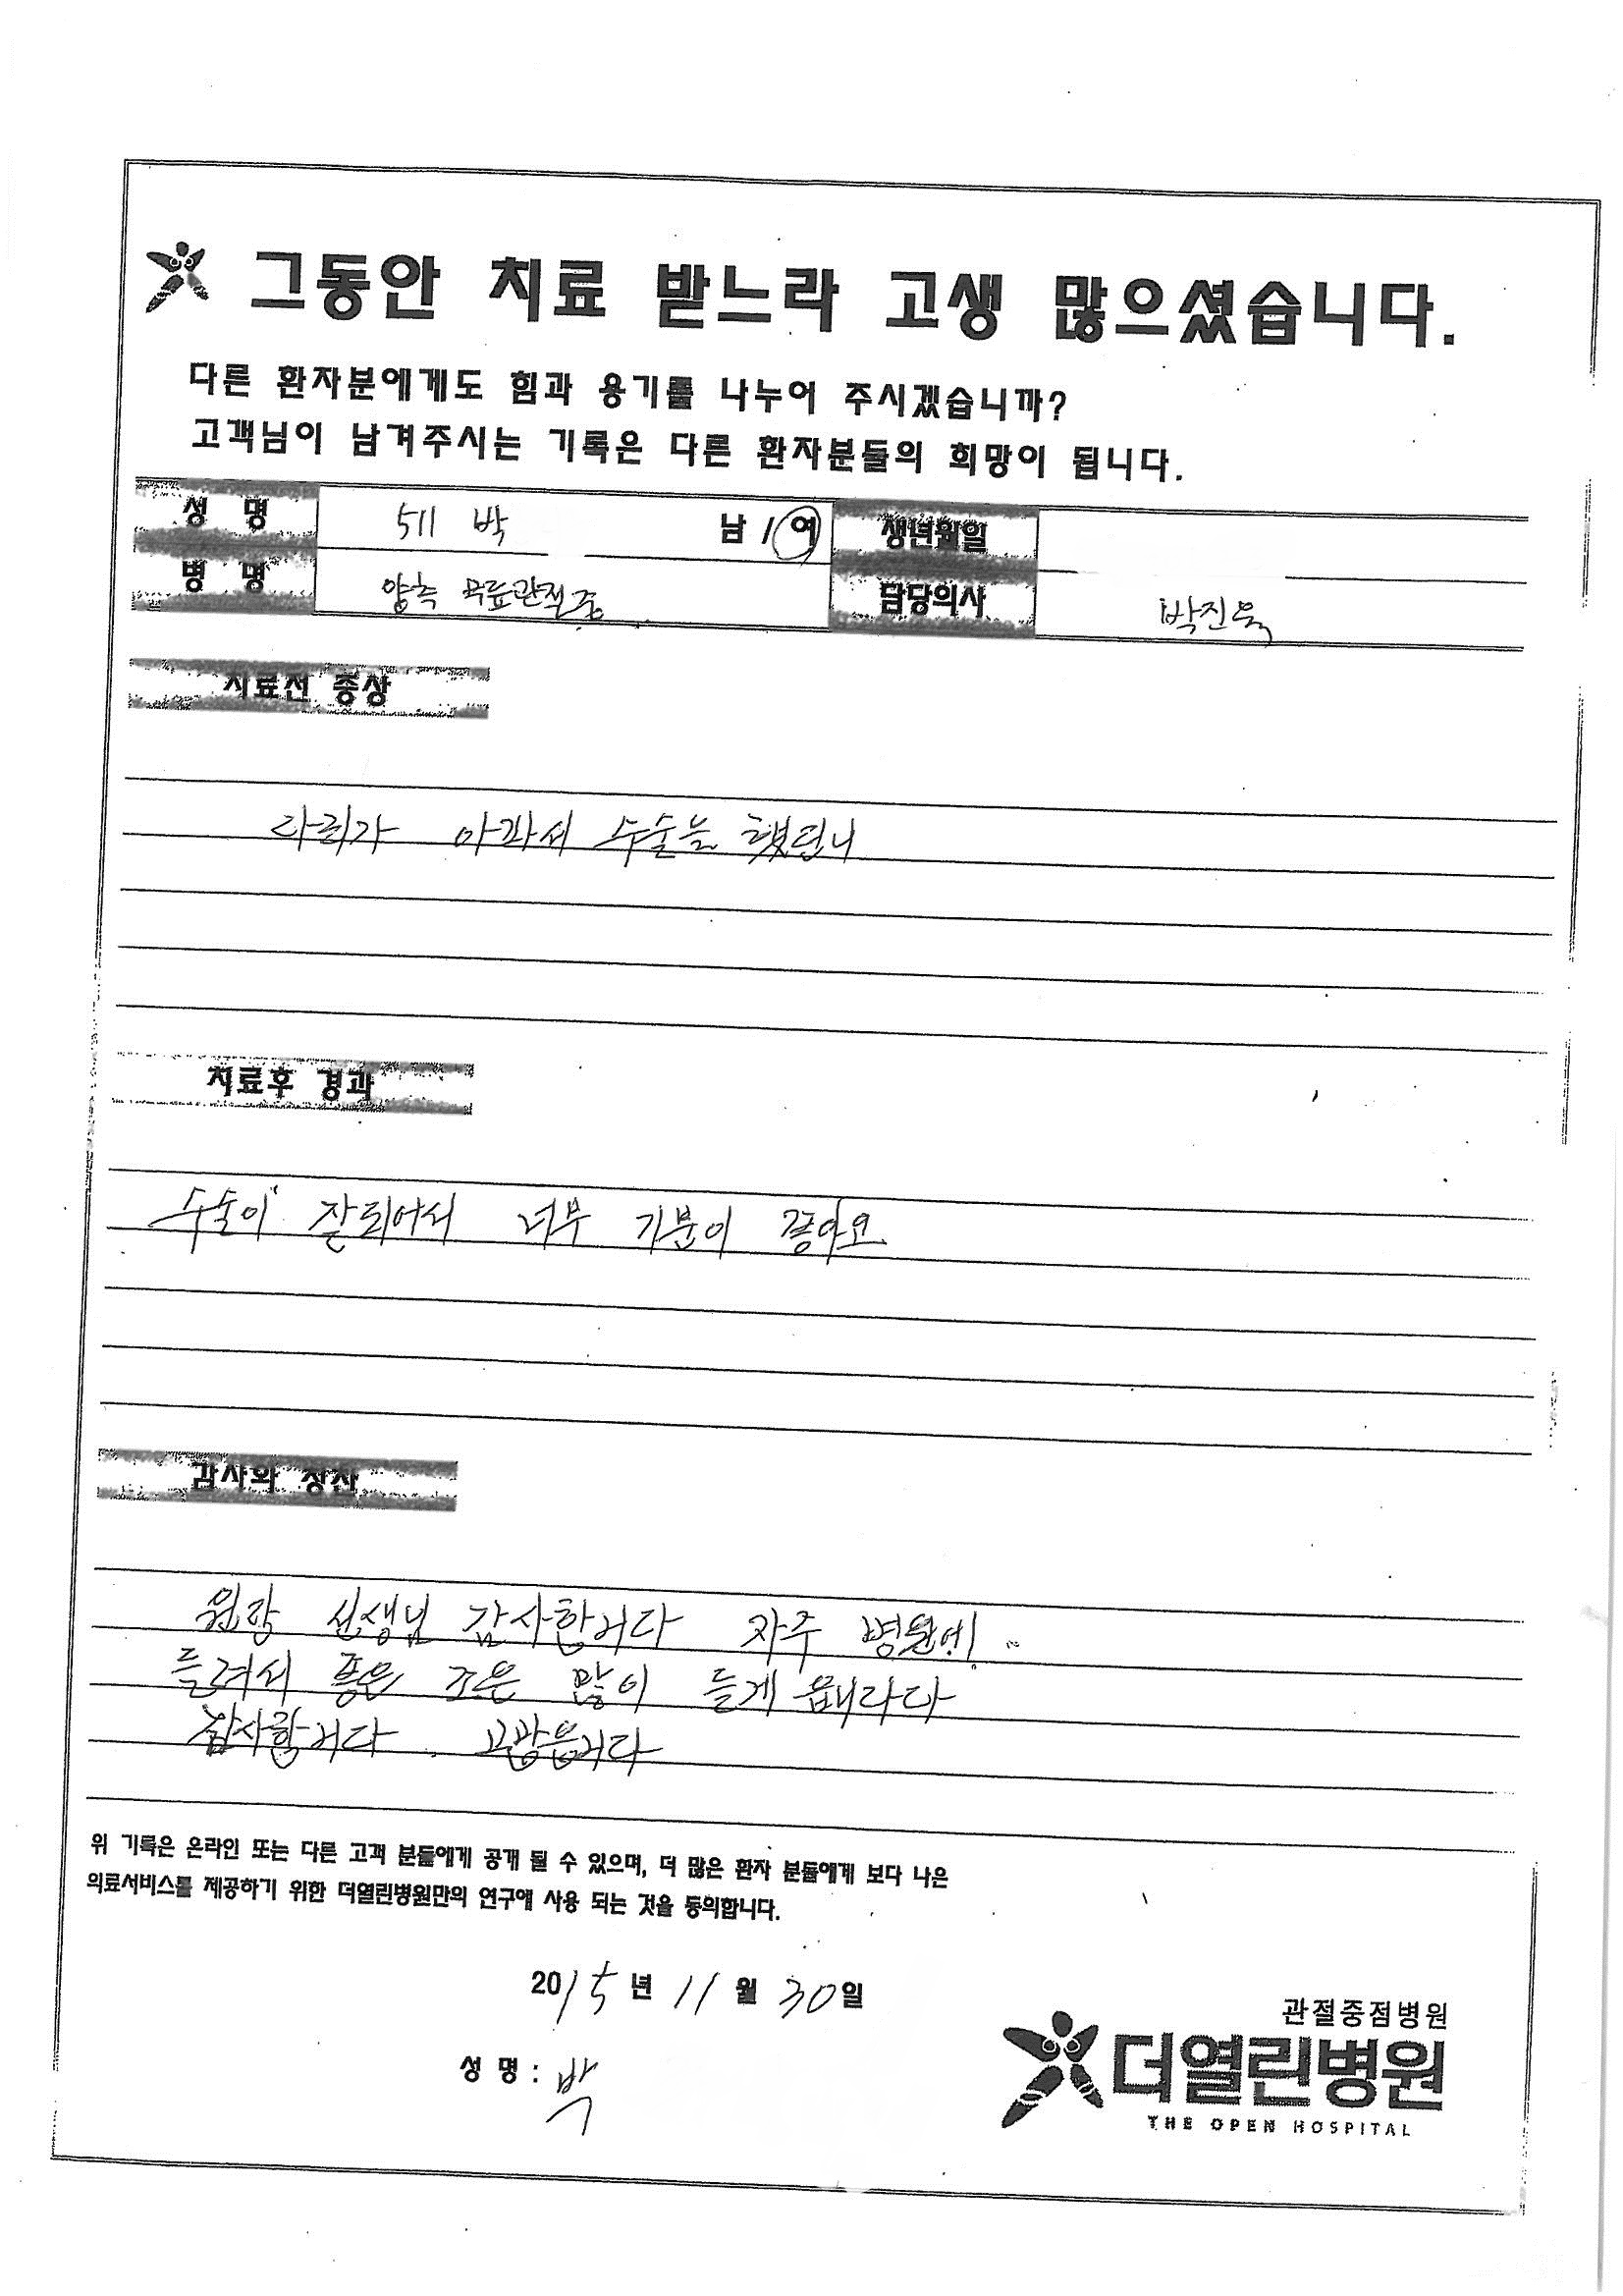 그동안 치료 받느라 고생 많으셨습니다.
다른 환자분에게도 힘과 용기를 나누어 주시겠습니까?
고객님이 남겨주시는 기록은 다른 환자분들의 희망이 됩니다.
성 명 511 박 남 / 여 생년월일
병 명 양측 무릎관절증 담당의사 박진욱
치료전 증상
다리가 아파서 수술을 했더니
치료후 경과
수술이 잘되어서 너무 기분이 좋아요
감사와 칭찬
원장 선생님 감사합니다 자주 병원에
들려서 좋은 조은 많이
감사합니다. 고맙습니다
위 기록은 온라인 또는 다른 고객 분들에게 공개 될 수 있으며, 더 많은 환자 분들에게 보다 나은
의료서비스를 제공하기 위한 더열린병원만의 연구에 사용 되는 것을 동의합니다.
2015년 11월 30일
성 명 : 박
관절중점병원
더열린병원
THE OPEN HOSPITAL